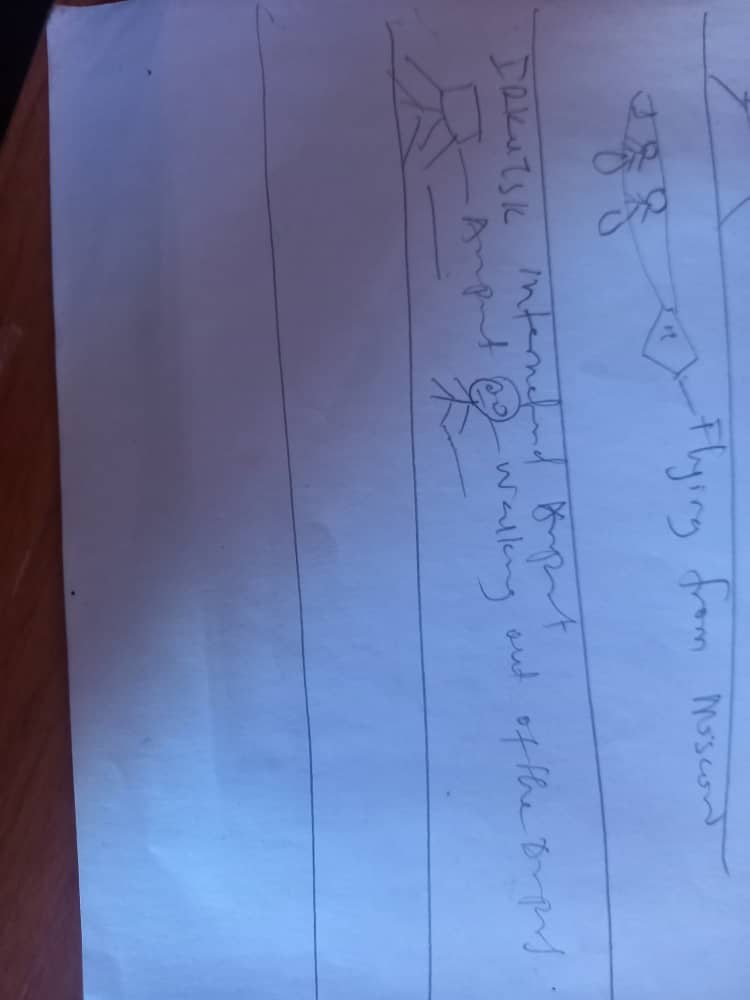 Flying from Moscow
IRKUTSK international Airport
Airport
walking out of the Airport